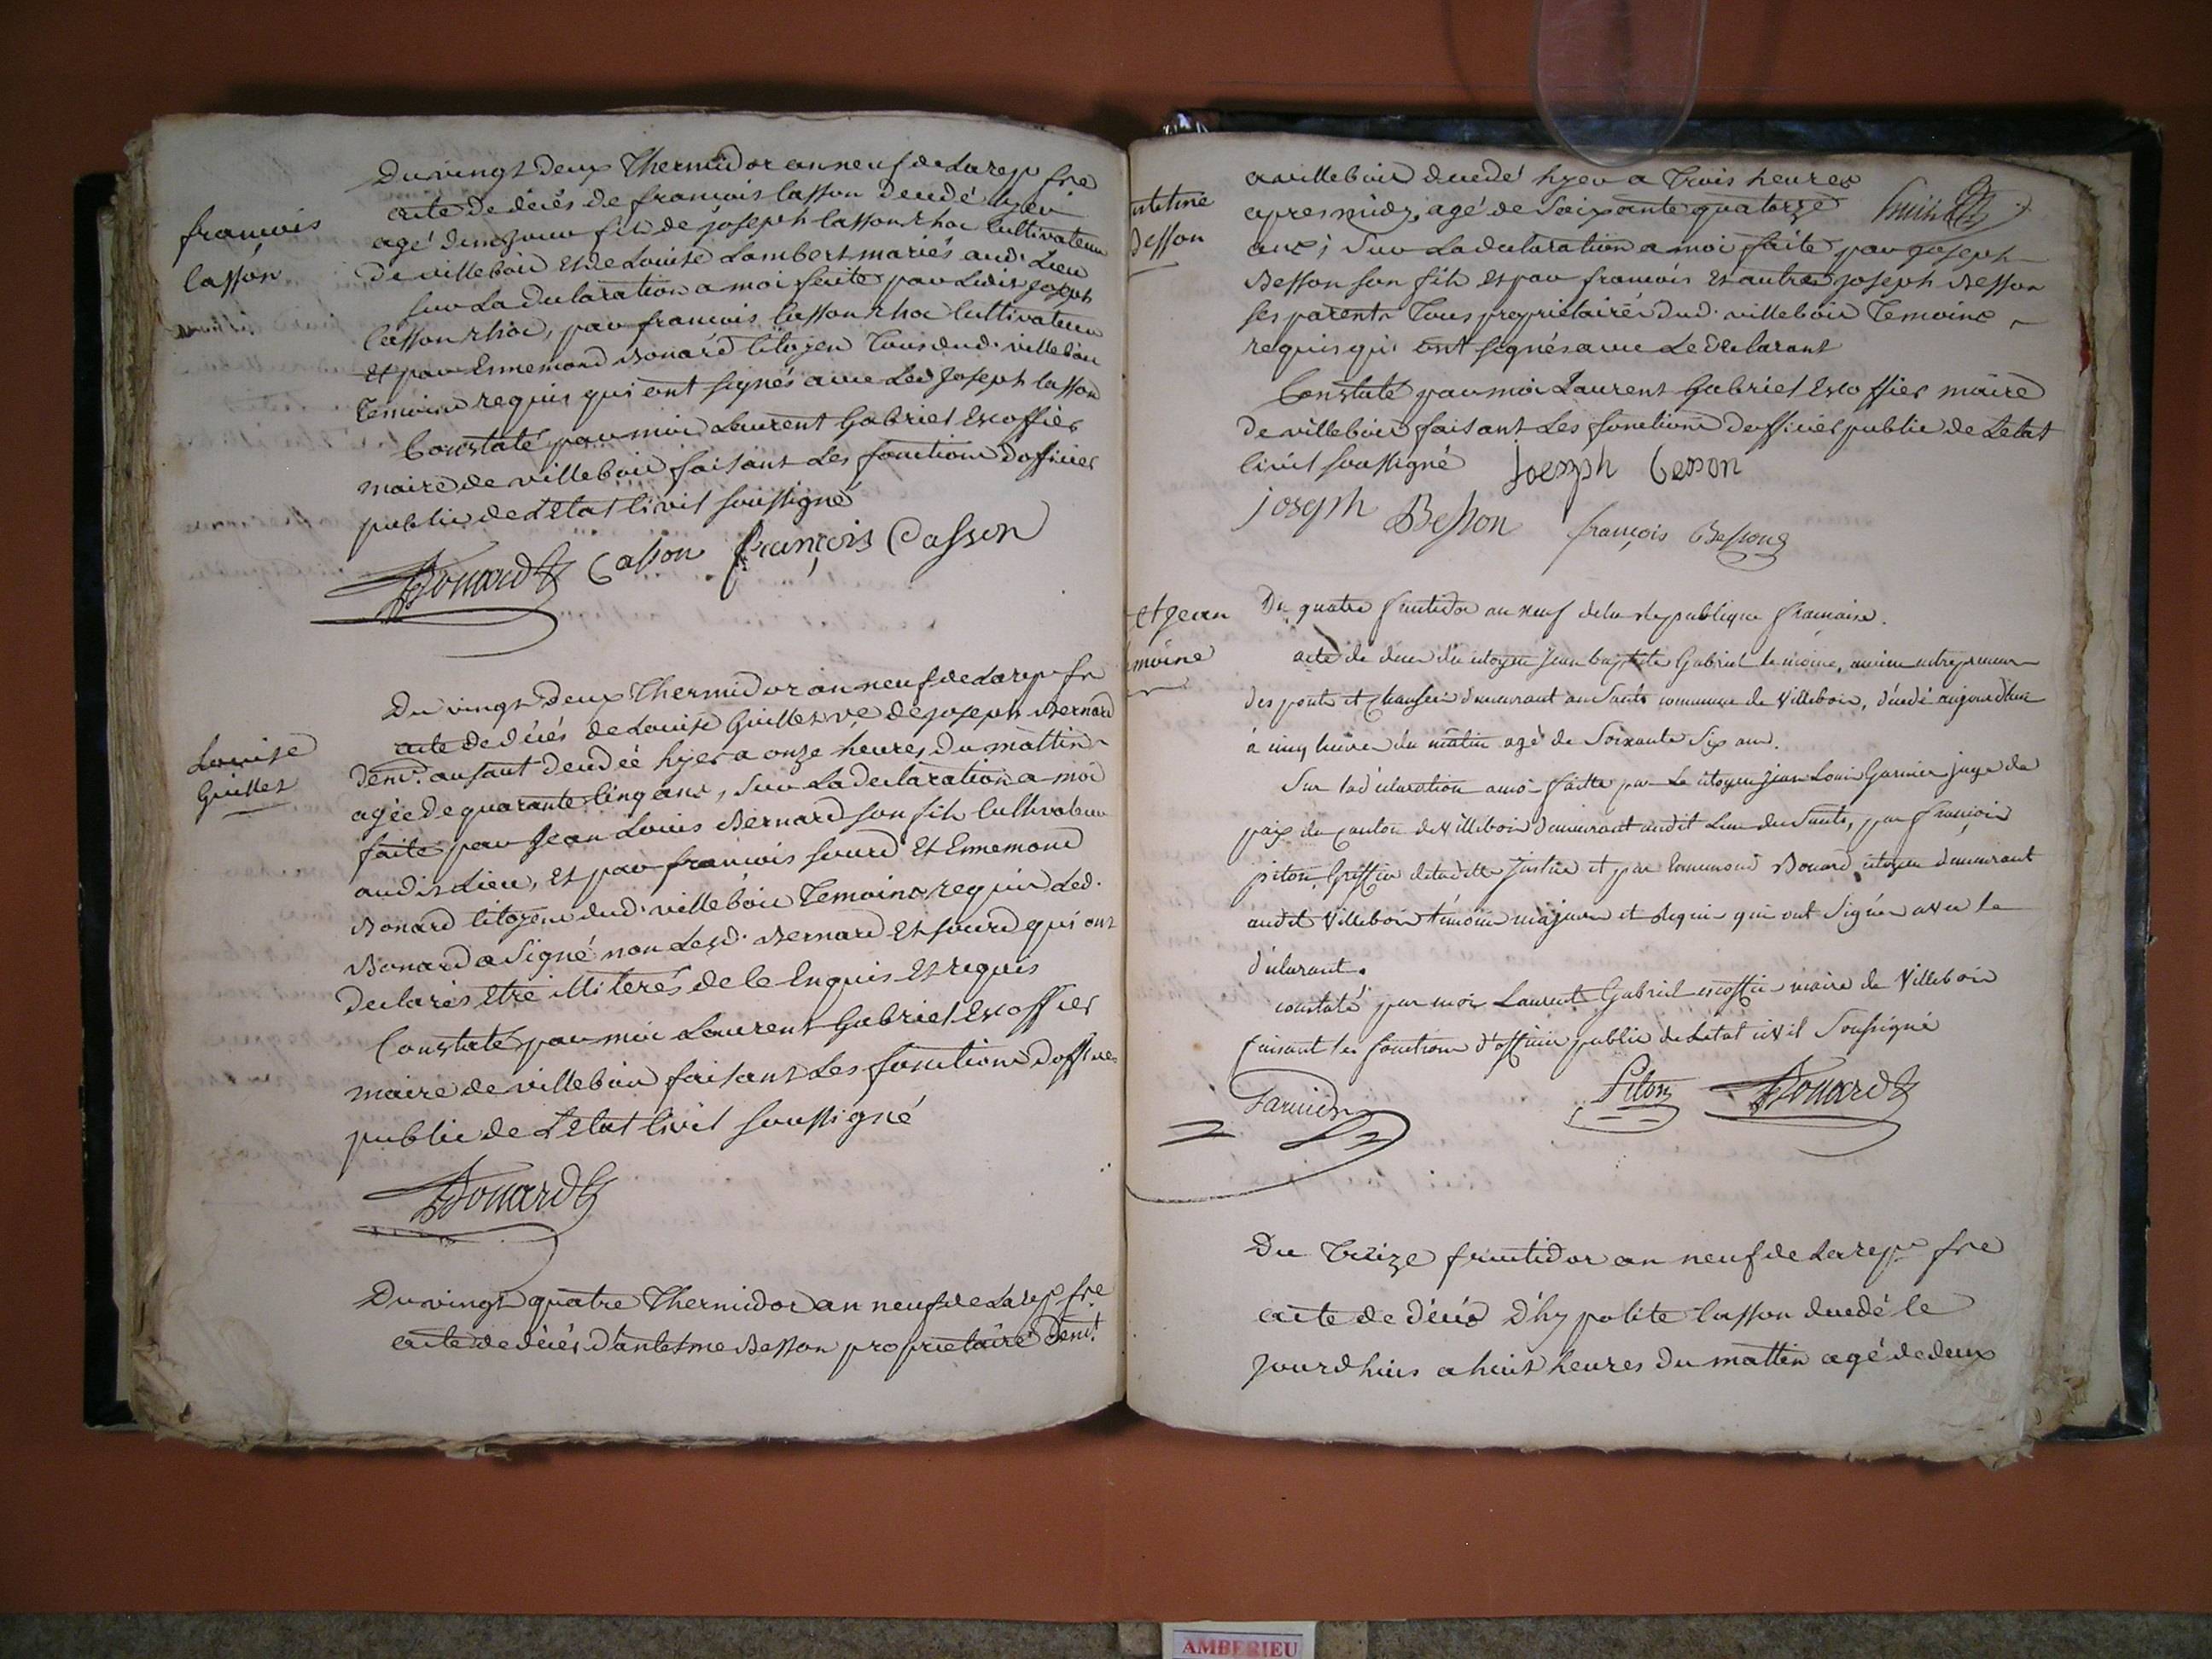 françois
Casson
Du vingt Deux Thermidor an neuf de La rep fre
acte de décès de françois Casson décédé hyer
agé d'un jour fils de joseph Casson Rhoc Cultivateur
De villebois et de Louise Lambert mariés aud. Lieu
sur La declaration a moi faite par Ledit joseph
Casson Rhoc, par françois Casson Rhoc Cultivateur
et par Ennemond Bonard Citoyen Tous dud. villebois
Temoins requis qui ont signés avec Led joseph Casson
Constaté par moi Laurent Gabriel Escoffier
maire de villebois faisant Les fonctions d'officier
public de L'etat Civil soussigné
Bonard Casson françois Casson
Louise
Guillet
Du vingt Deux Thermidor an neuf de La rep fre
acte de décés de Louise Guillet ve de joseph Bernard
demt. au saut decedée hyer a onze heures du mattin
agée de quarante Cinq ans, sur La declaration a moi
faite par Jean Louis Bernard son fils Cultivateur
audit Lieu, et par françois sourd et Ennemond
Bonard Citoyens dud. villebois Temoins requis Led.
Bonard a Signé non Lesd. Bernard et sourd qui ont
declarés etre illiterés de le Enquis et requis
Constaté par moi Laurent Gabriel Escoffier
maire de villebois faisant Les fonctions d'officier
public de L'etat Civil soussigné
Bonard
Du vingt quatre Thermidor an neuf de La rep fre
acte de décés d'antesme Besson propriétaire demt.
ntesme
Besson
a villebois decedé hyer a Trois heures
apres midy, agé de Soixante quatorze
ans; sur La declaration a moi faite par joseph
Besson son fils et par françois et autre joseph Besson
ses parents Tous propriétaires dud. villebois Temoins
requis qui ont signés avec Le declarant
Constaté par moi Laurent Gabriel Escoffier maire
de villebois faisant Les fonctions d'officier public de Letat
Civil soussigné Joesph Beson
joseph Besson françois Besson
et jean
moine
Du quatre fructidor an neuf de la Republique francaise.
acte de deces du citoyen jean baptiste Gabriel lemoine, ancien entrepreneur
des ponts et chaussées demeurant au Sault commune de Villebois, décédé aujourdhui
à cinq heures du matin agé de Soixante Six ans.
Sur la déclaration a moi faitte par Le citoyen jean Louis Garnier juge de
paix du canton de Villebois demeurant audit Lieu du Sault, par françois
piton Greffier de ladite justice et par Ennemond Bonard citoyen demeurant
audit Villebois témoins majeurs et Requis qui ont Signés avec le
déclarant.
constaté par moi Laurent Gabriel escoffier maire de Villebois
faisant les fonctions d'officier public de Letat civil Soussigné
Garnier Piton Bonard
Du Treize fructidor an neuf de La rep fre
acte de décés d'hypolite Casson decedé le
jourdhuis a huit heures du mattin agé de deux
AMBERIEU